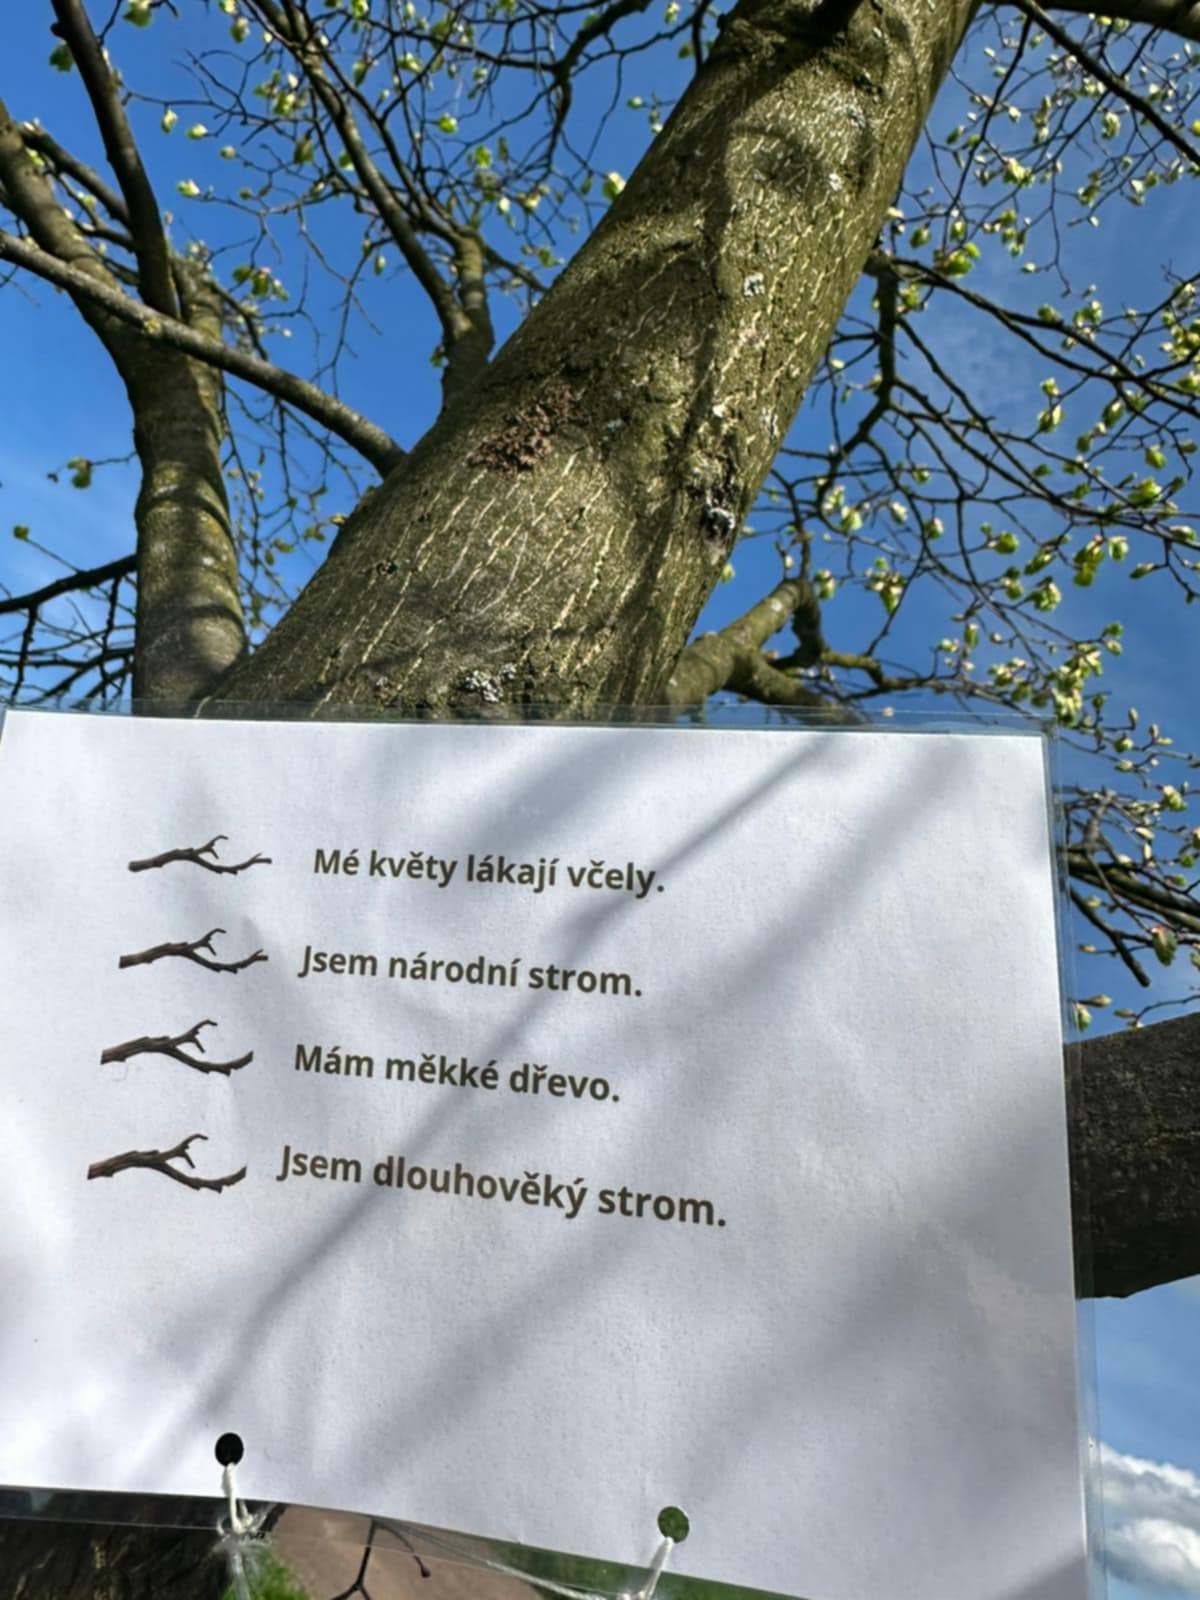 Mé květy lákají včely.
Jsem národní strom.
Mám měkké dřevo.
Jsem dlouhověký strom.